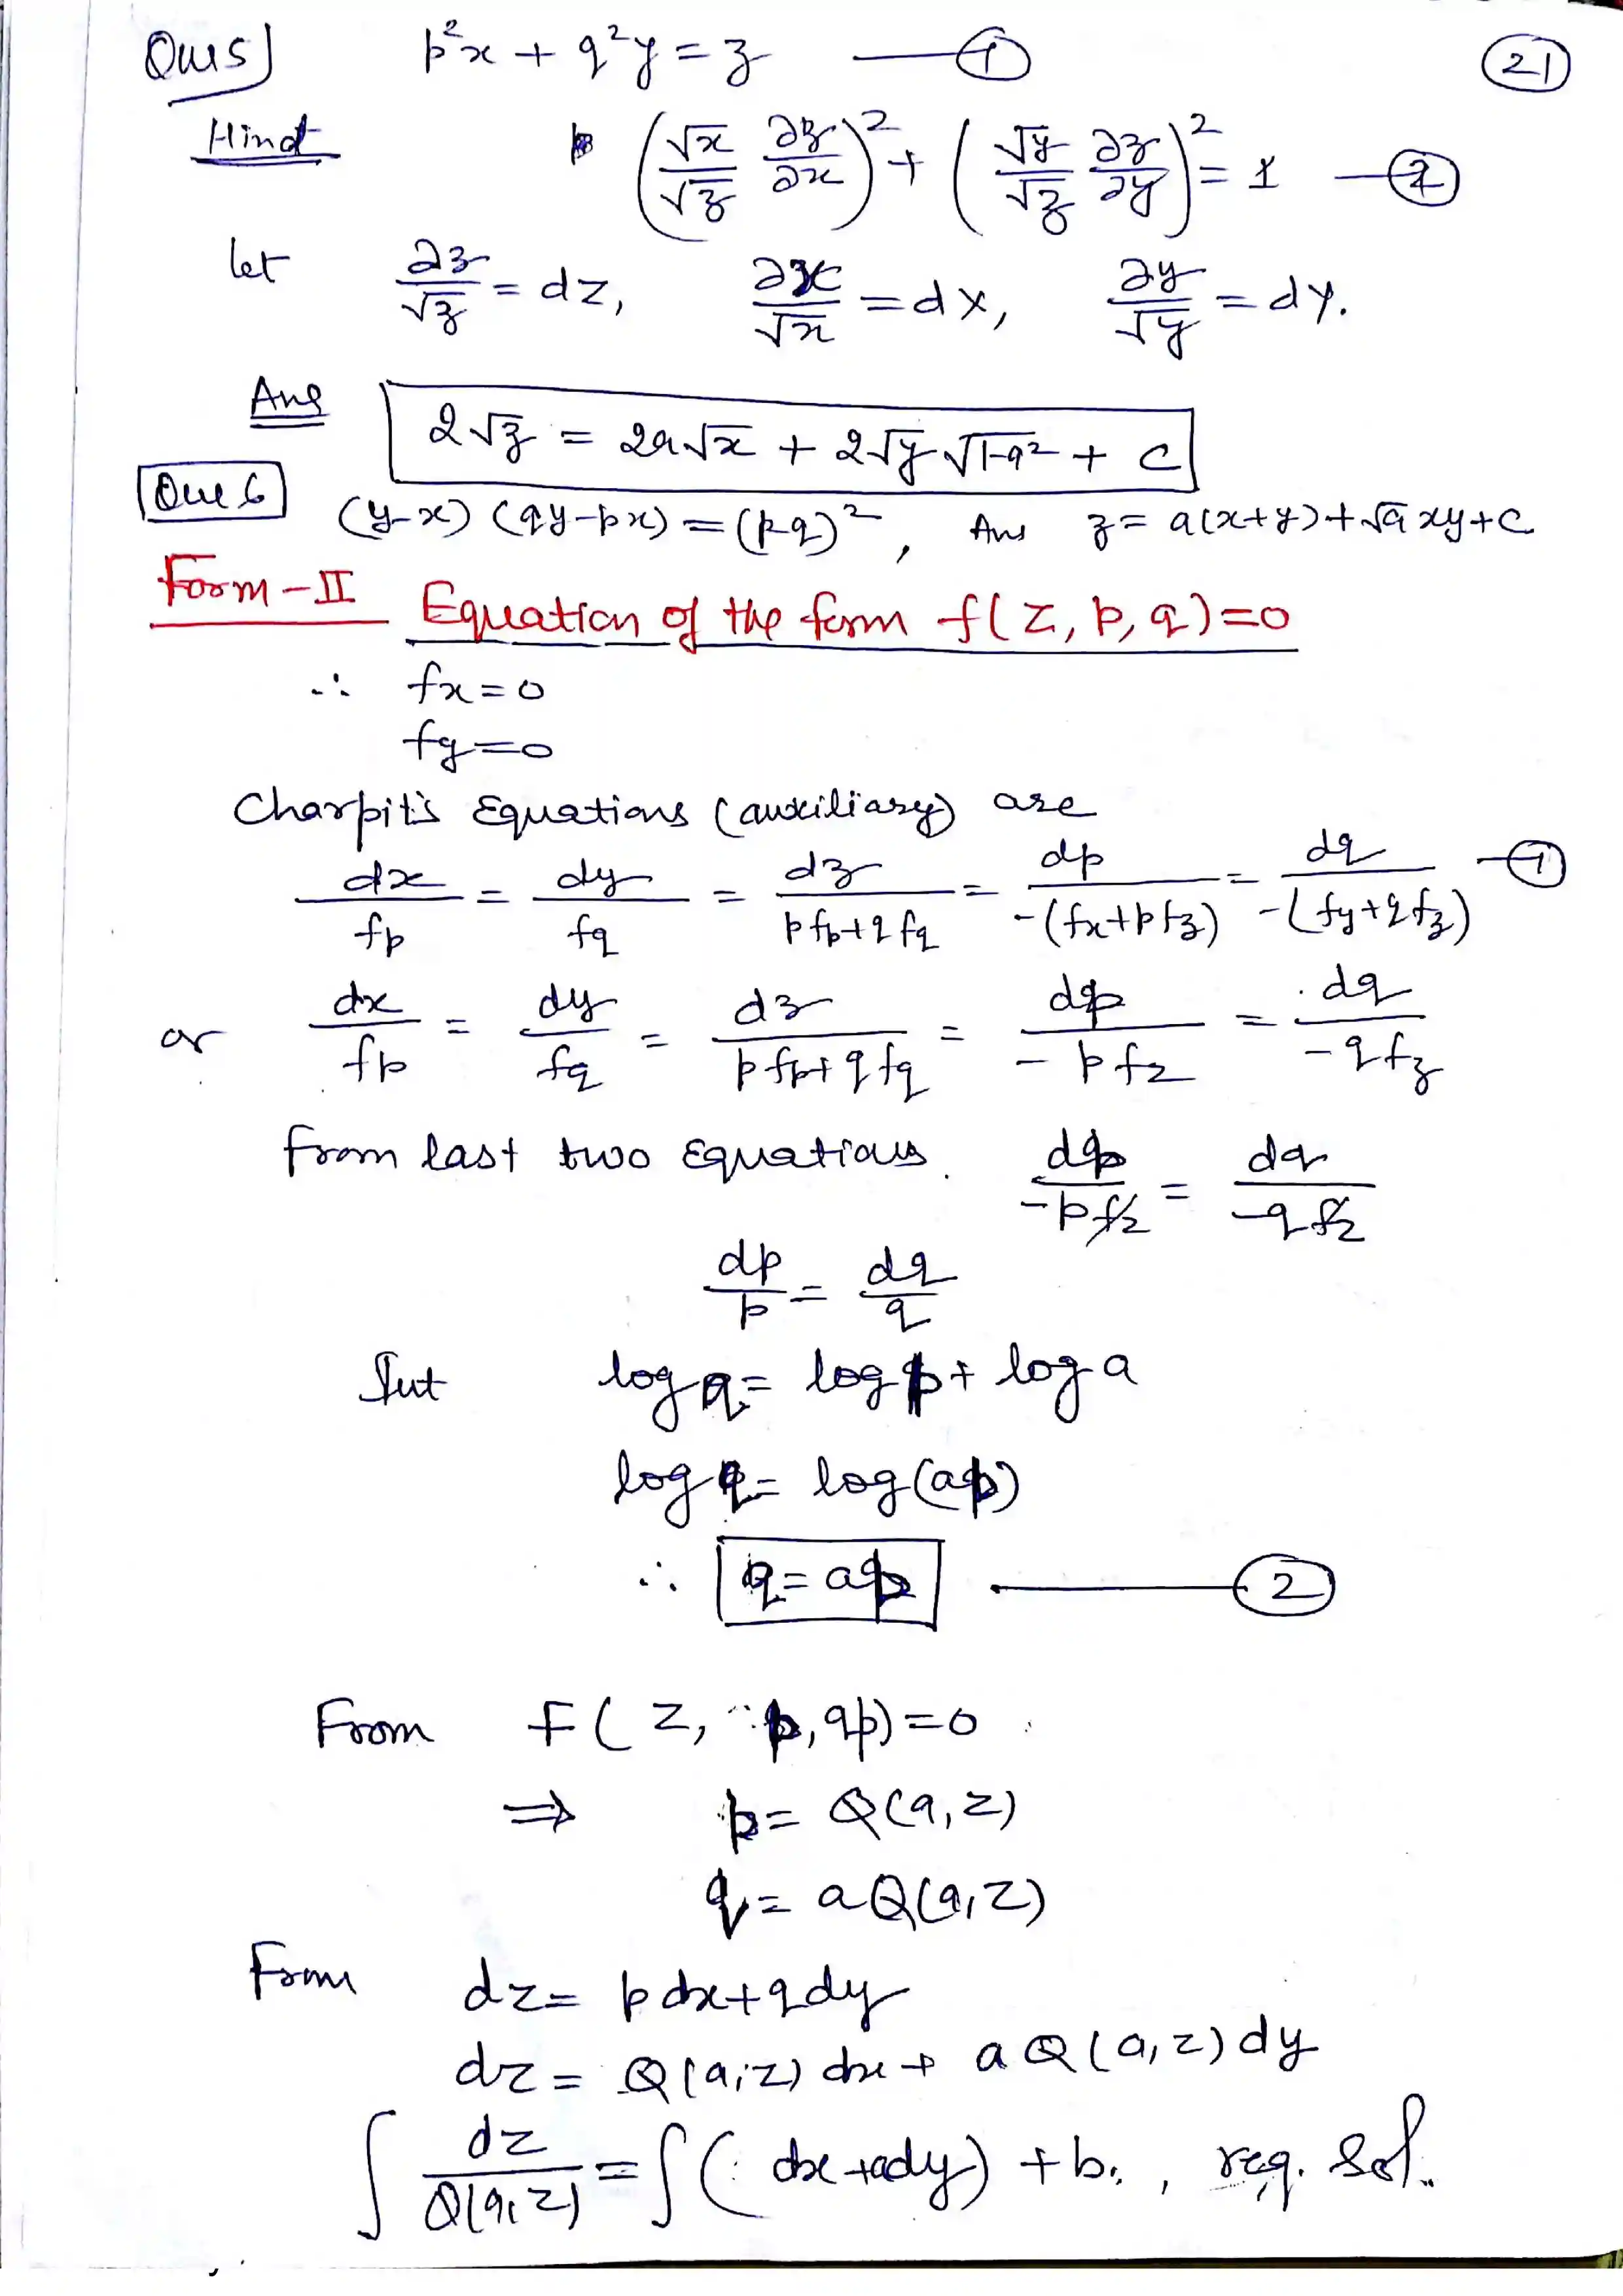 Ques 5) p²x + q²y = z —① (21)
Hind (√x/√z ∂z/∂x)² + (√y/√z ∂z/∂y)² = 1 —②
let ∂z/√z = dz, ∂x/√x = dX, ∂y/√y = dY.
Ans 2√z = 2a√x + 2√y √1-a² + c
Que 6 (y-x) (qy-px) = (p-q)², Ans z = a(x+y)+√a xy+c
Form-II Equation of the form f(z, p, q)=0
∴ fx=0
fy=0
Charpit's Equations (auxiliary) are
dx/fp = dy/fq = dz/pfp+qfq = dp/-(fx+pfz) = dq/-(fy+qfz) —①
or dx/fp = dy/fq = dz/pfp+qfq = dp/-pfz = dq/-qfz
from last two Equations. dp/-pfz = dq/-qfz
dp/p = dq/q
Int log q = log p + log a
log q = log(ap)
∴ q = ap —②
From F(z, p, ap)=0
⇒ p = Q(a,z)
q = a Q(a,z)
From dz = pdx+qdy
dz = Q(a,z) dx + a Q(a,z) dy
∫ dz/Q(a,z) = ∫(dx+ady) + b, req. sol.